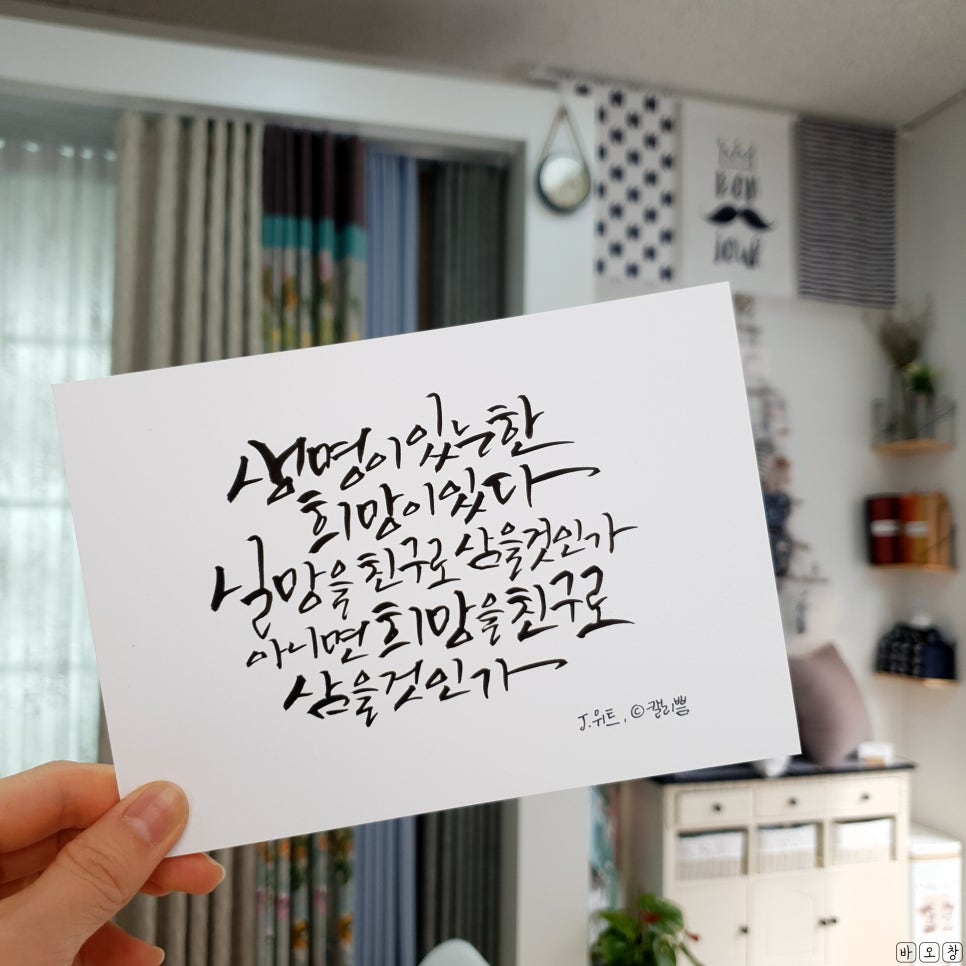 MON
BON
JOUR
생명이 있는 한
희망이 있다
실망을 친구로 삼을것인가
아니면 희망을 친구로
삼을것인가
J.위트, ©캘리쁨
바오창